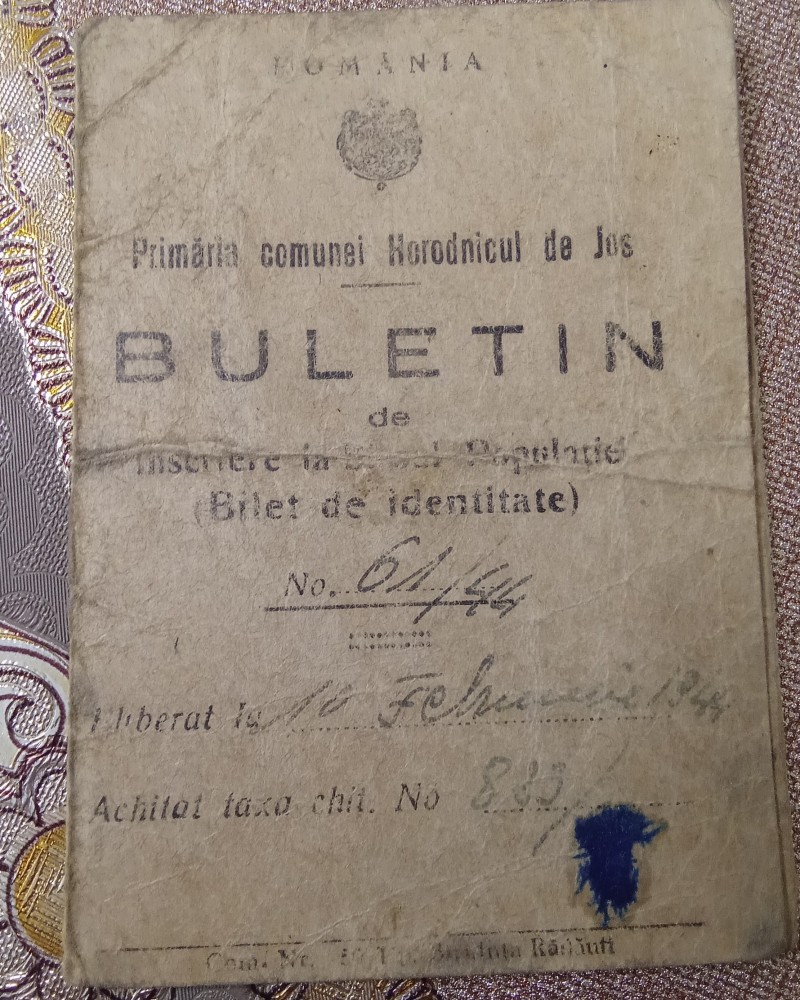 ROMÂNIA
Primăria comunei Horodnicul de Jos
BULETIN
de
Inscriere in Populație
(Bilet de identitate)
No. 61/44
Eliberat la 10 Februarie 1944
Achitat taxa chit. No 883/
Com. Nr. Rădăuți